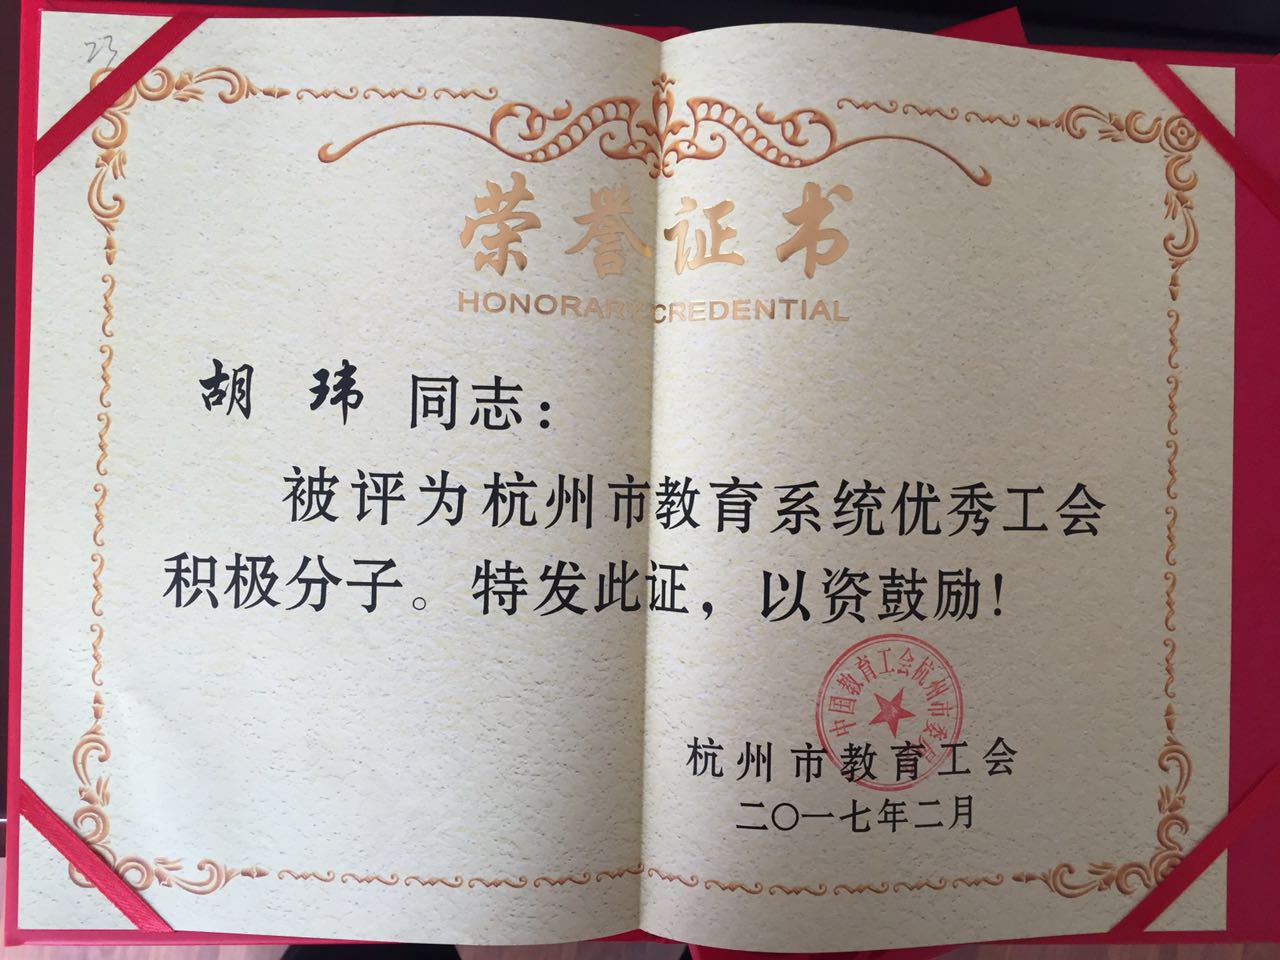 23
荣誉证书
HONORARY CREDENTIAL
胡 玮 同志：
被评为杭州市教育系统优秀工会
积极分子。特发此证，以资鼓励！
中国教育工会杭州市委员会
杭州市教育工会
二〇一七年二月